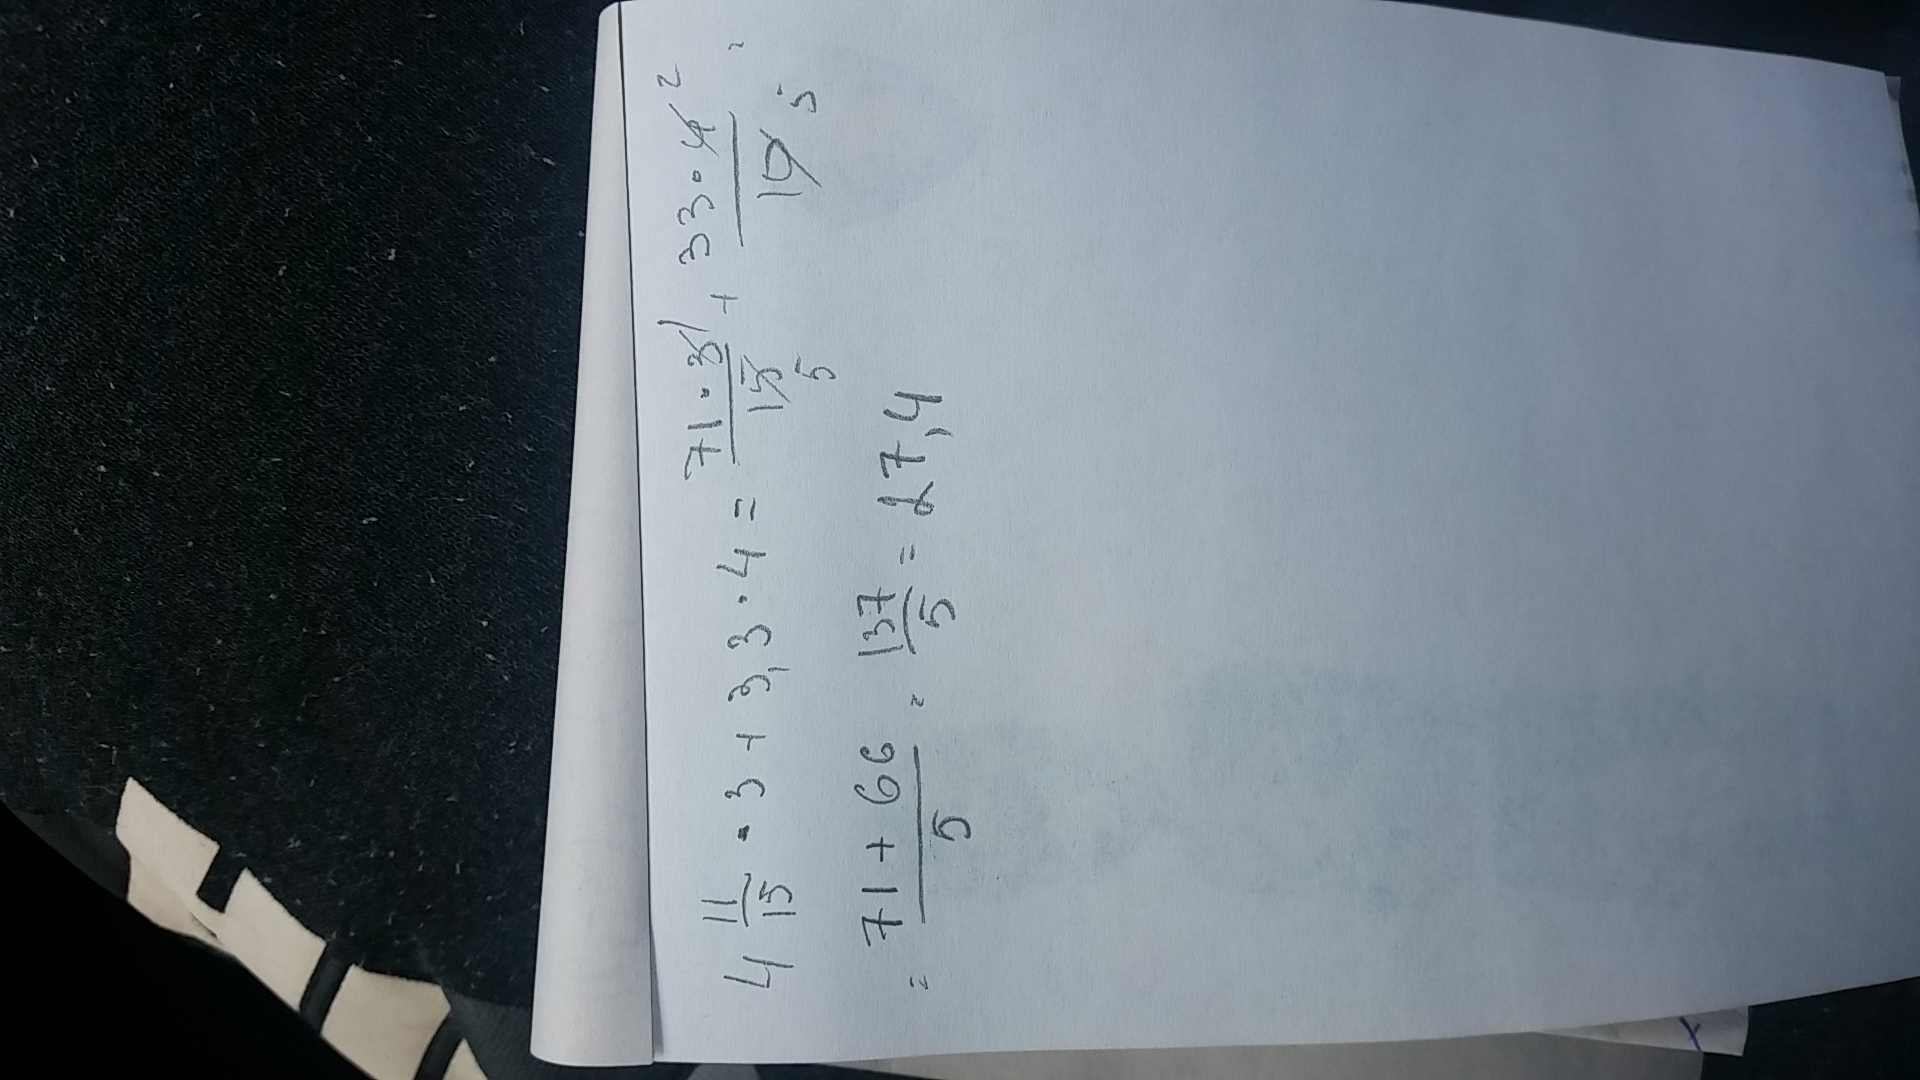 4 11/15 · 3 + 3,3 · 4 = 71·3 1/15 5 + 33·4 2/10 5 =
= 71 + 66/5 = 137/5 = 27,4